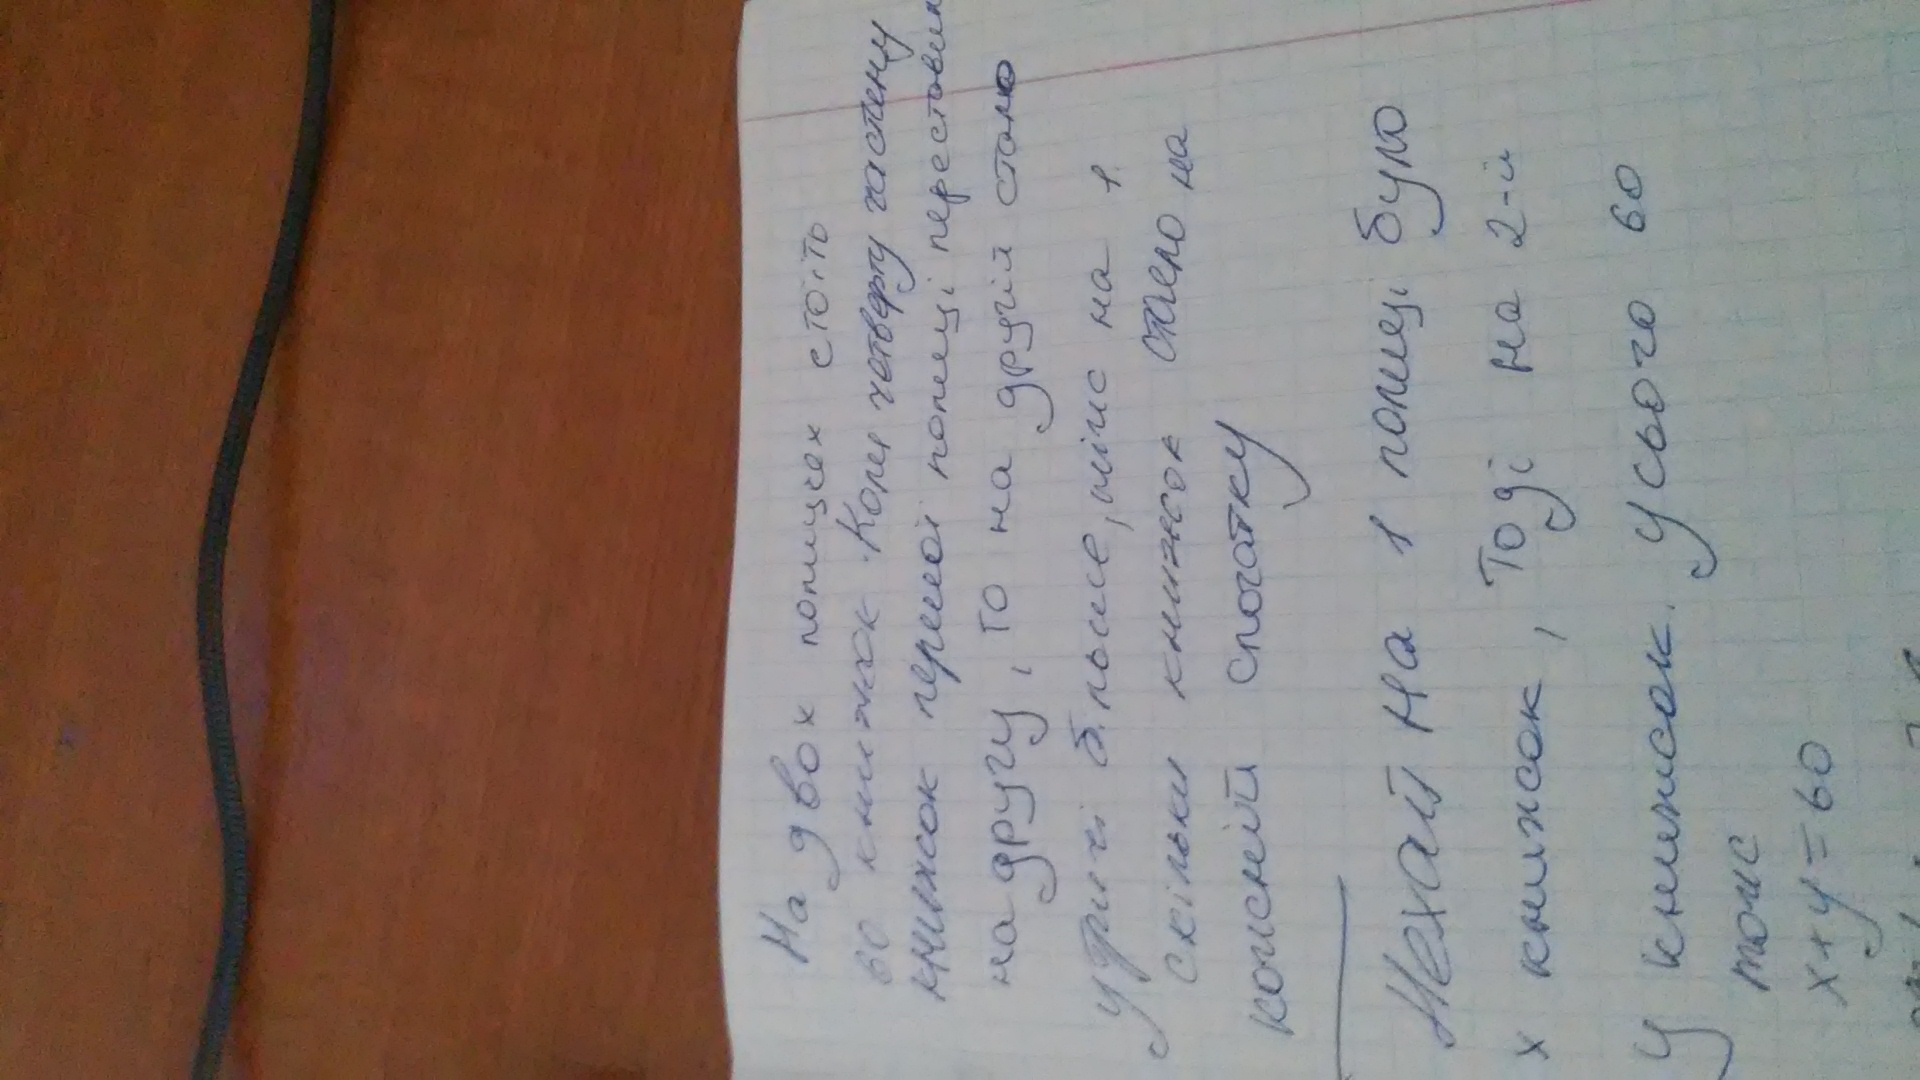 На двох полицях стоїть
60 книжок. Коли четверту частину
книжок першої полиці переставили
на другу, то на другій стало
утричі більше, ніж на 1.
Скільки книжок стало на
кожній спочатку
Нехай на 1 полиці було
х книжок, Тоді на 2-й
у книжок. Усього 60
тож
х+у=60